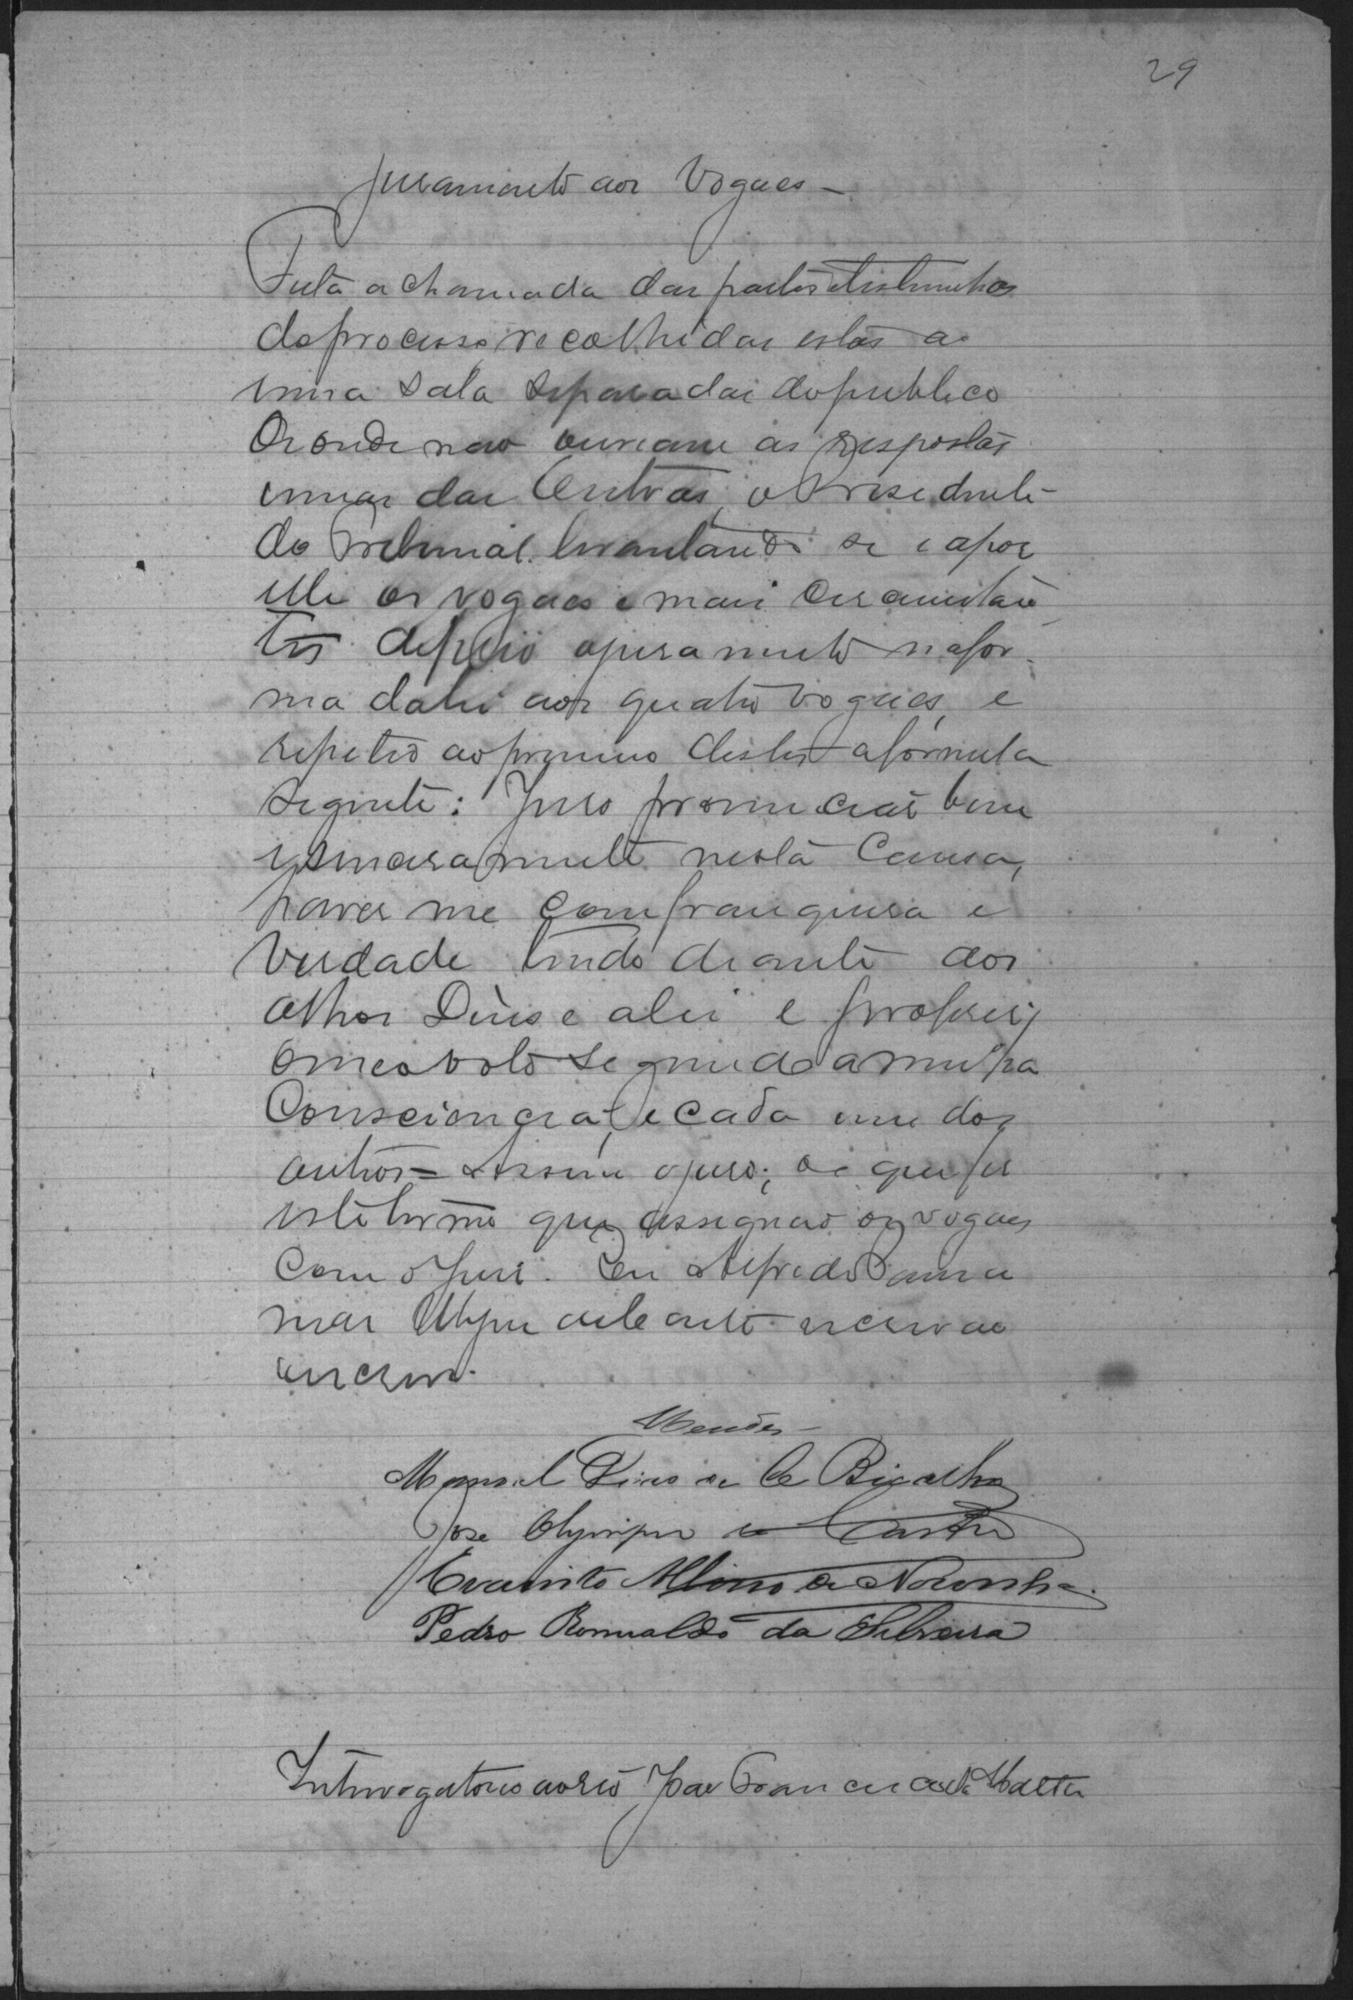 29
Juramento aos Vogaes -
Feita a chamada das partes e testemunhas
do processo, recolhidas estas a
uma sala separadas do publico
de onde não ouvicem as respostas
umas das outras, o Presidente
do Tribunal levantando se e apos
elle os vogaes e mais circunstan-
tes deferio o juramento na for-
ma da lei aos quatro vogaes, e
repetio ao primeiro destes a formula
seguinte: Juro pronunciar bem
e sinceramente nesta Causa,
haver me com franqueza e
verdade tendo diante dos
olhos Deus e a lei e proferir
o meo voto segundo a minha
Consciencia, e cada um dos
outros = Assim o juro; do que fis
este termo que assignão os vogaes
com o Juis. Eu Alfredo
escrivão
escrevi.
Mendes
Manoel Pires de C Bicalho
Jose Olympio de Castro
Evaristo Albino de Noronha
Pedro Romualdo da Silveira
Interrogatorio ao reo João Francisco da Matta